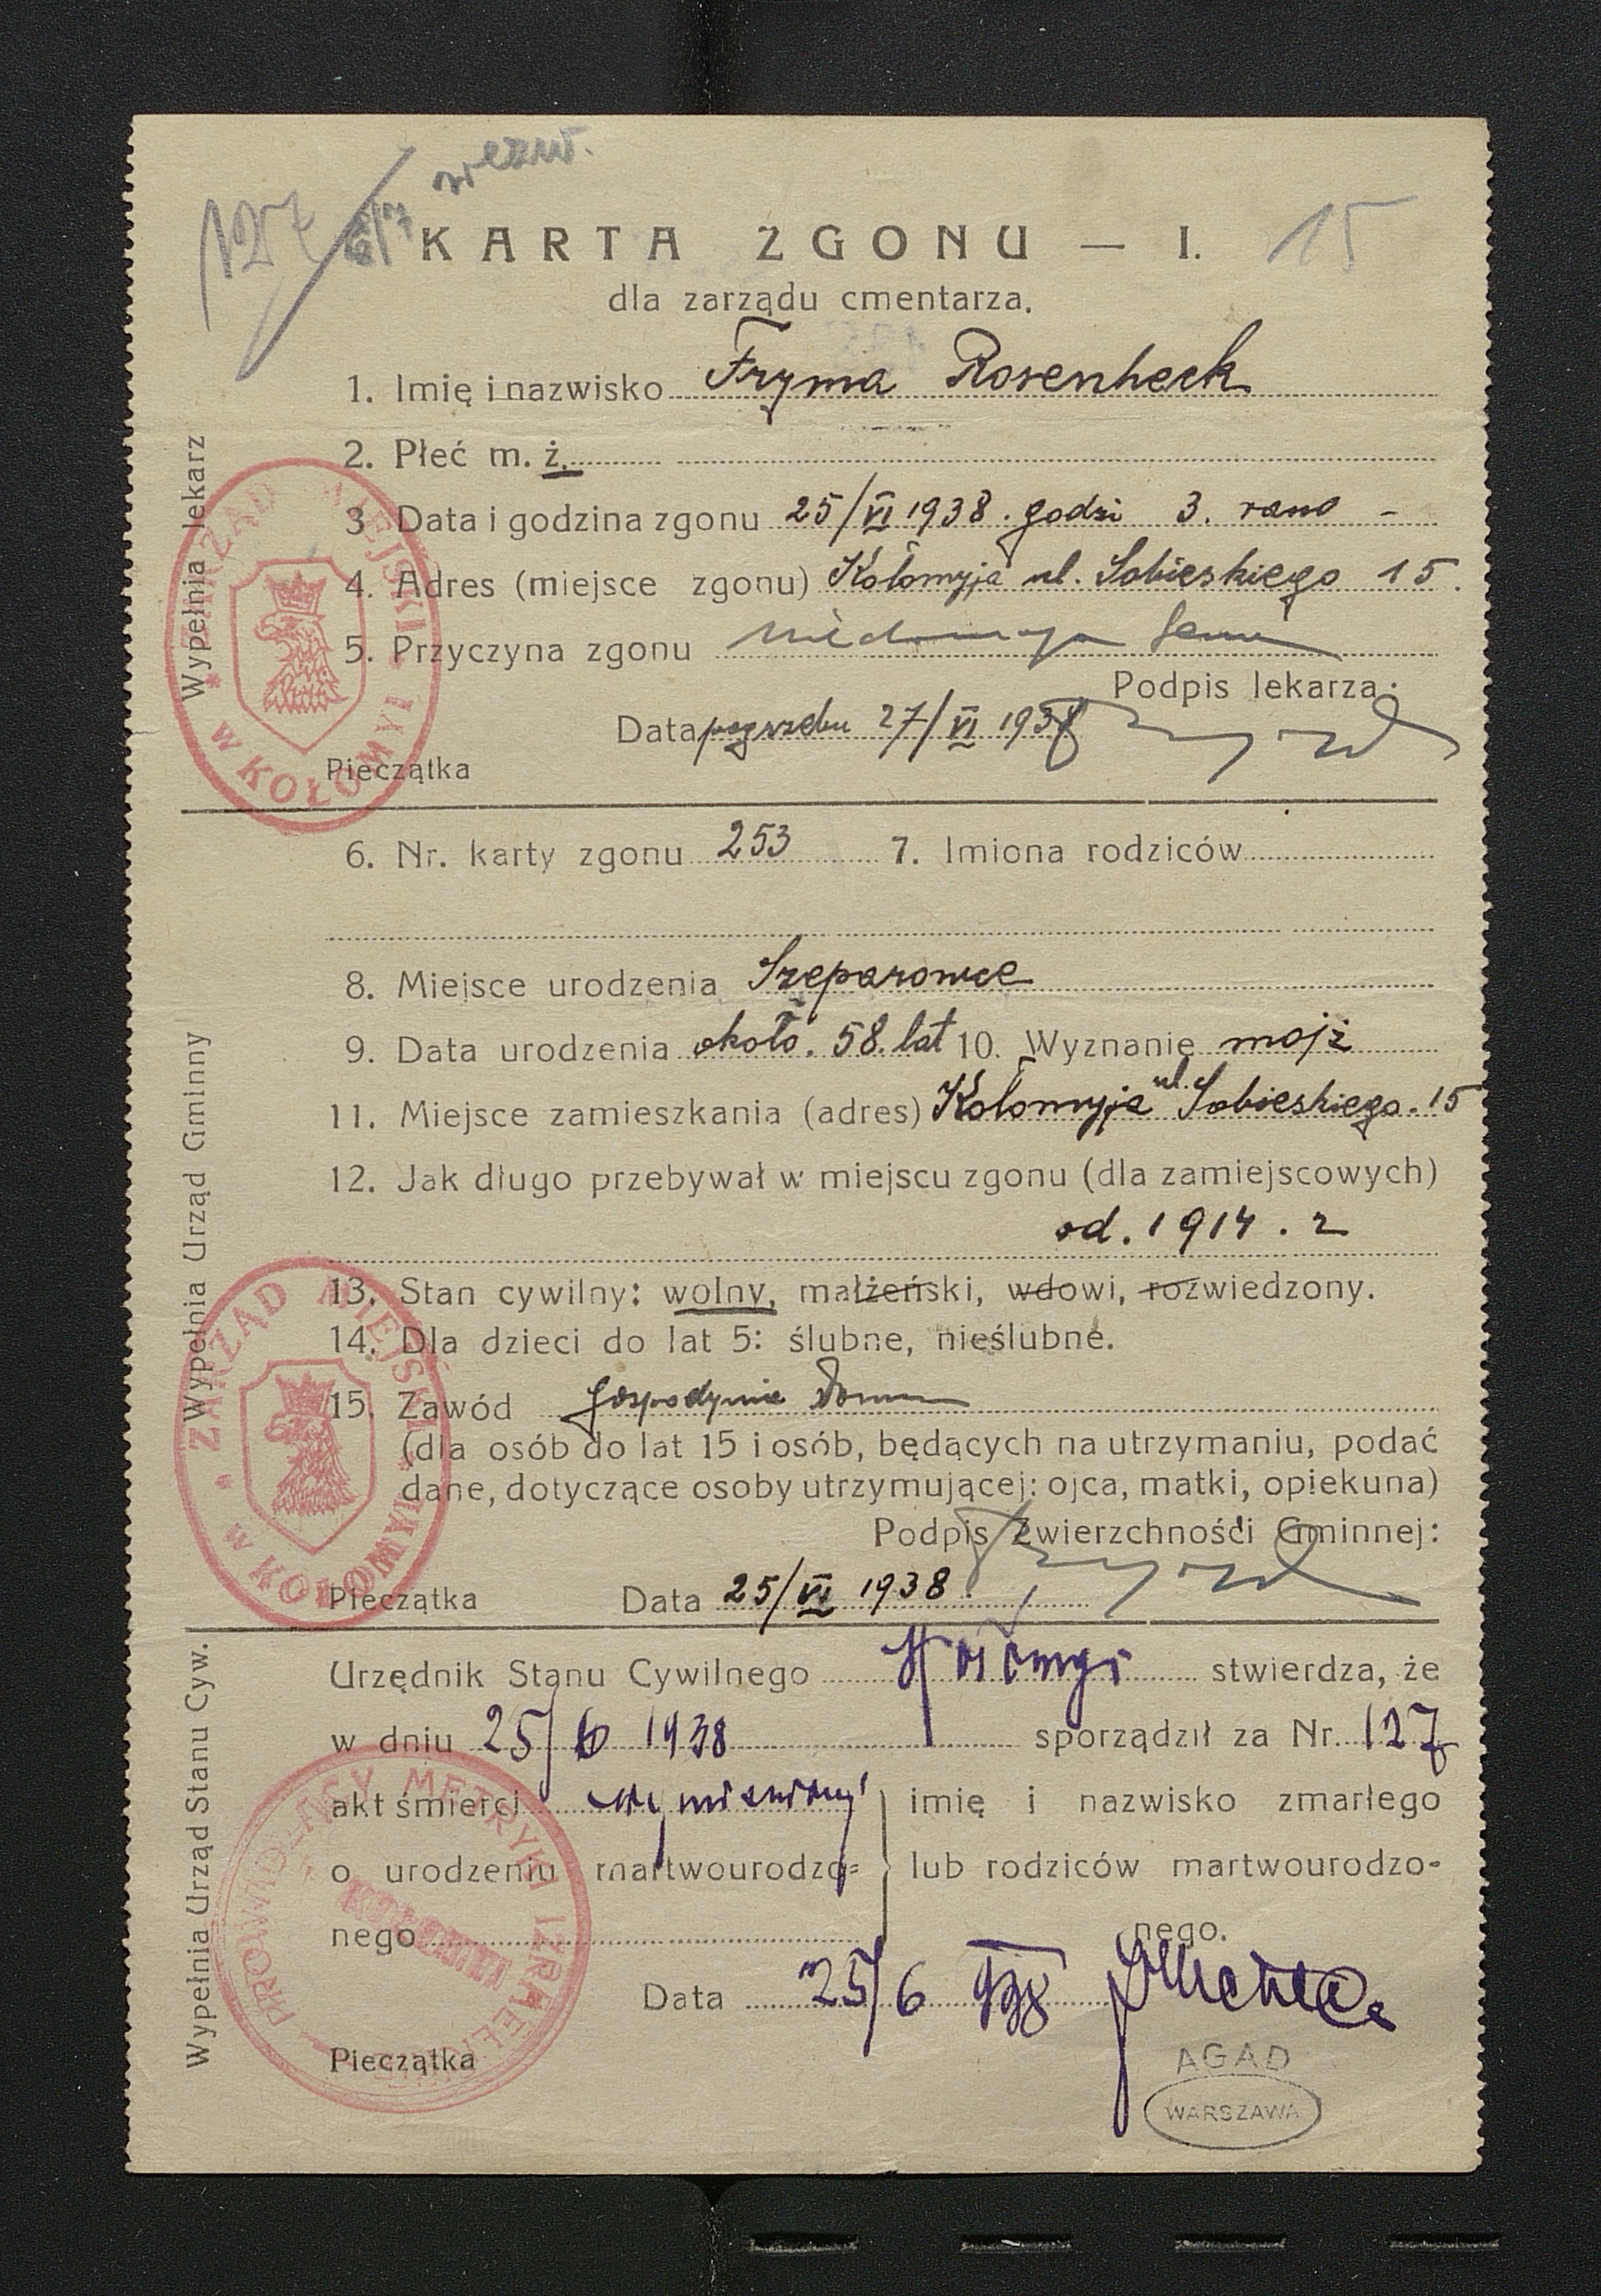 127
15
KARTA ZGONU — I.
dla zarządu cmentarza.
1. Imię i nazwisko Fryma Rosenheck
2. Płeć m. ż.
3. Data i godzina zgonu 25/VI 1938. godzi 3. rano -
4. Adres (miejsce zgonu) Kołomyja ul. Sobieskiego 15.
5. Przyczyna zgonu
Podpis lekarza:
Data pogrzebu 27/VI 1938
Pieczątka
Wypełnia lekarz
ZARZĄD MIEJSKI W KOŁOMYI
6. Nr. karty zgonu 253 7. Imiona rodziców
8. Miejsce urodzenia Szeparowce
9. Data urodzenia około. 58. lat 10. Wyznanie mojż
11. Miejsce zamieszkania (adres) Kołomyja ul. Sobieskiego. 15
12. Jak długo przebywał w miejscu zgonu (dla zamiejscowych)
od. 1914. r
13. Stan cywilny: wolny, małżeński, wdowi, rozwiedzony.
14. Dla dzieci do lat 5: ślubne, nieślubne.
15. Zawód gospodynie
(dla osób do lat 15 i osób, będących na utrzymaniu, podać
dane, dotyczące osoby utrzymującej: ojca, matki, opiekuna)
Podpis Zwierzchności Gminnej:
Pieczątka Data 25/VI 1938.
Wypełnia Urząd Gminny
ZARZĄD MIEJSKI W KOŁOMYI
Urzędnik Stanu Cywilnego Kołomyi stwierdza, że
w dniu 25/6 1938 sporządził za Nr. 127
akt śmierci wymienionej imię i nazwisko zmarłego
o urodzeniu martwourodzo= lub rodziców martwourodzo-
nego nego.
Data 25/6 1938
Pieczątka
Wypełnia Urząd Stanu Cyw.
PROWIDZĄCY METRYKI IZRAELICKIE
KOŁOMYI
AGAD
WARSZAWA